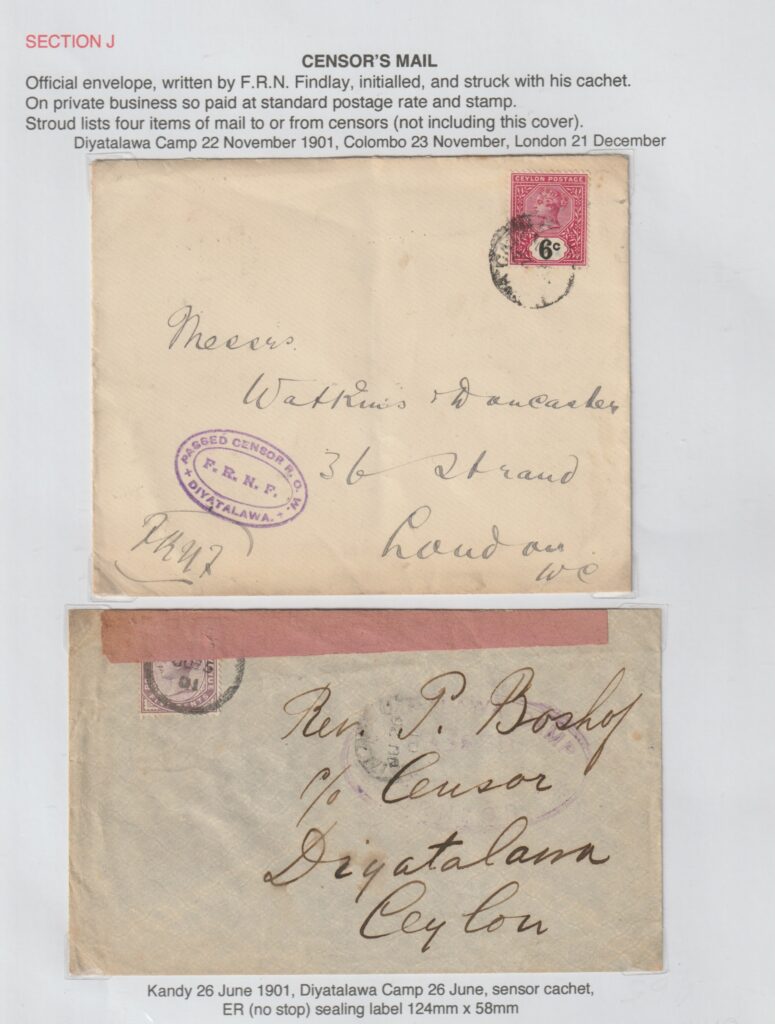 SECTION J
CENSOR'S MAIL
Official envelope, written by F.R.N. Findlay, initialled, and struck with his cachet.
On private business so paid at standard postage rate and stamp.
Stroud lists four items of mail to or from censors (not including this cover).
Diyatalawa Camp 22 November 1901, Colombo 23 November, London 21 December
CEYLON POSTAGE
6c
Messrs.
Watkins & Doncaster
36 Strand
London
WC
PASSED CENSOR P.O.W.
F. R. N. F.
DIYATALAWA.
FRNF
01
Rev. P. Boshof
c/o Censor
Diyatalawa
Ceylon
Kandy 26 June 1901, Diyatalawa Camp 26 June, sensor cachet,
ER (no stop) sealing label 124mm x 58mm